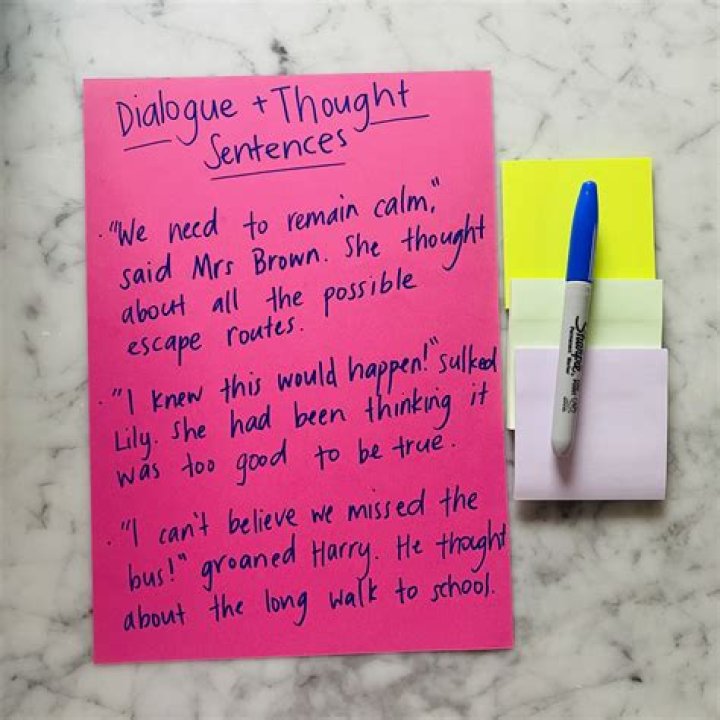 Dialogue + Thought
Sentences
· "We need to remain calm,"
said Mrs Brown. She thought
about all the possible
escape routes.
· "I knew this would happen!" sulked
Lily. She had been thinking it
was too good to be true.
· "I can't believe we missed the
bus!" groaned Harry. He thought
about the long walk to school.
Sharpie